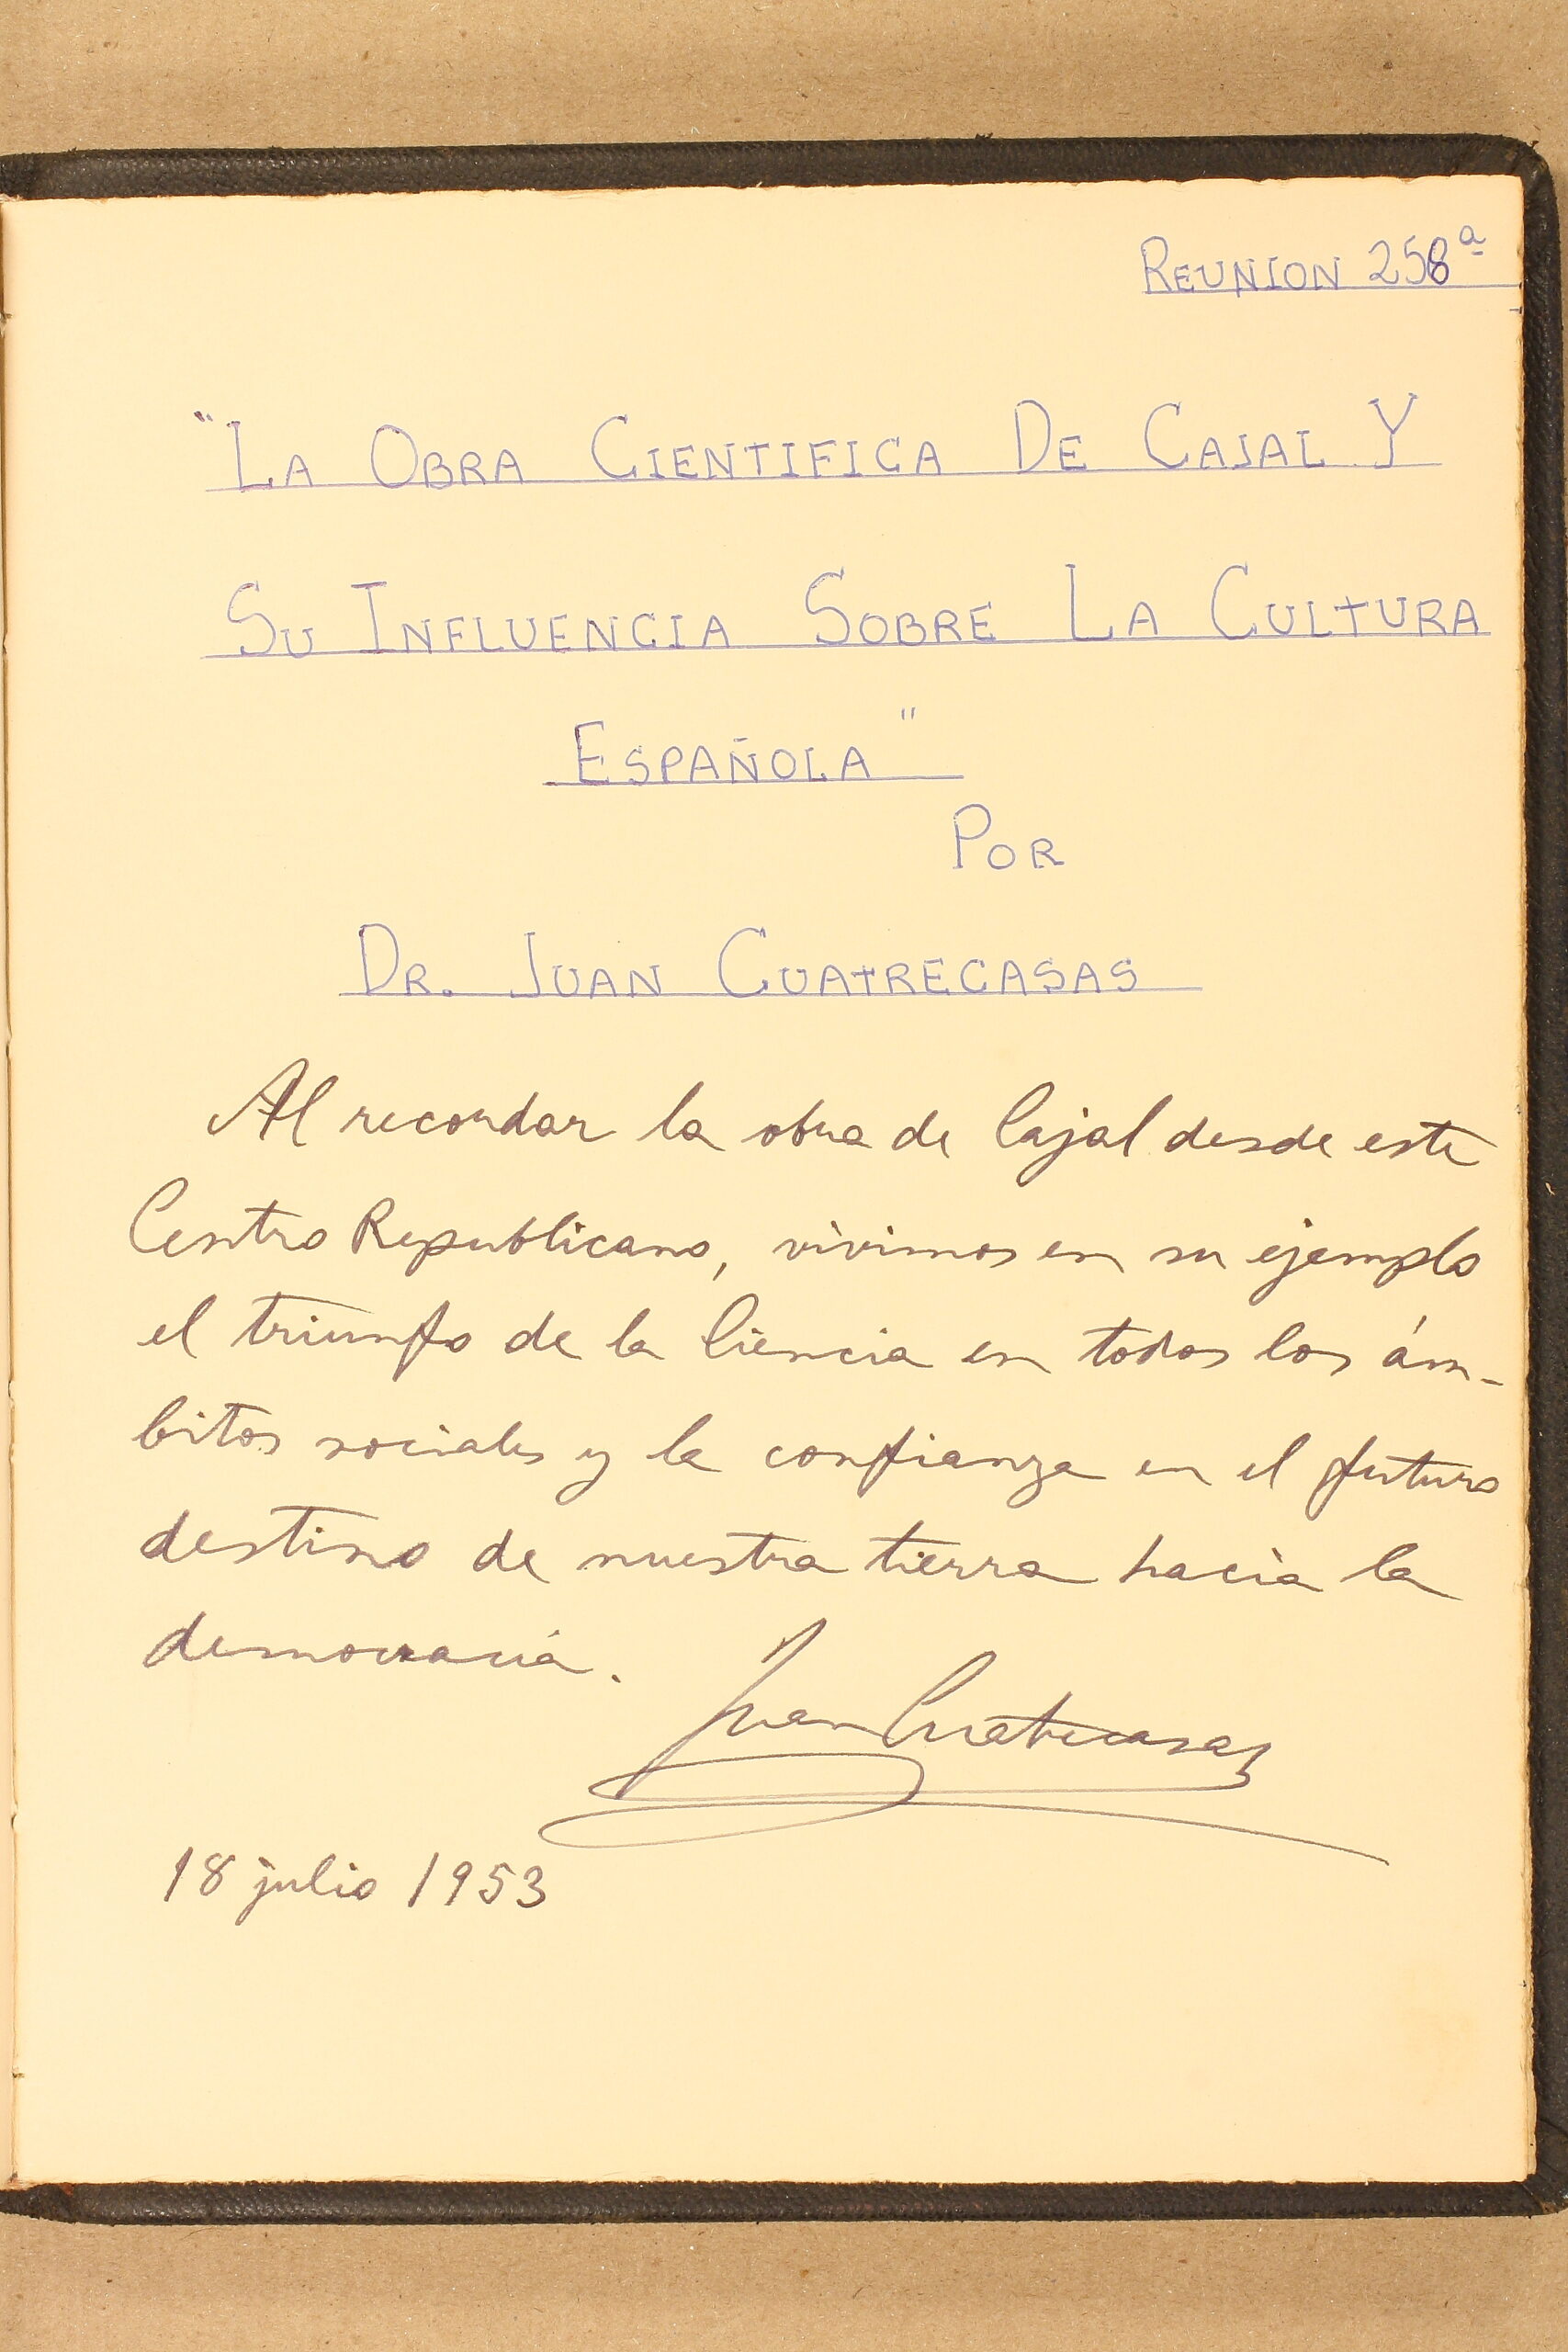 REUNION 258ª
"LA OBRA CIENTIFICA DE CAJAL Y
SU INFLUENCIA SOBRE LA CULTURA
ESPAÑOLA"
POR
DR. JUAN CUATRECASAS
Al recordar la obra de Cajal desde este
Centro Republicano, vivimos en su ejemplo
el triunfo de la Ciencia en todos los ám-
bitos sociales y la confianza en el futuro
destino de nuestra tierra hacia la
democracia.
Juan Cuatrecasas
18 julio 1953